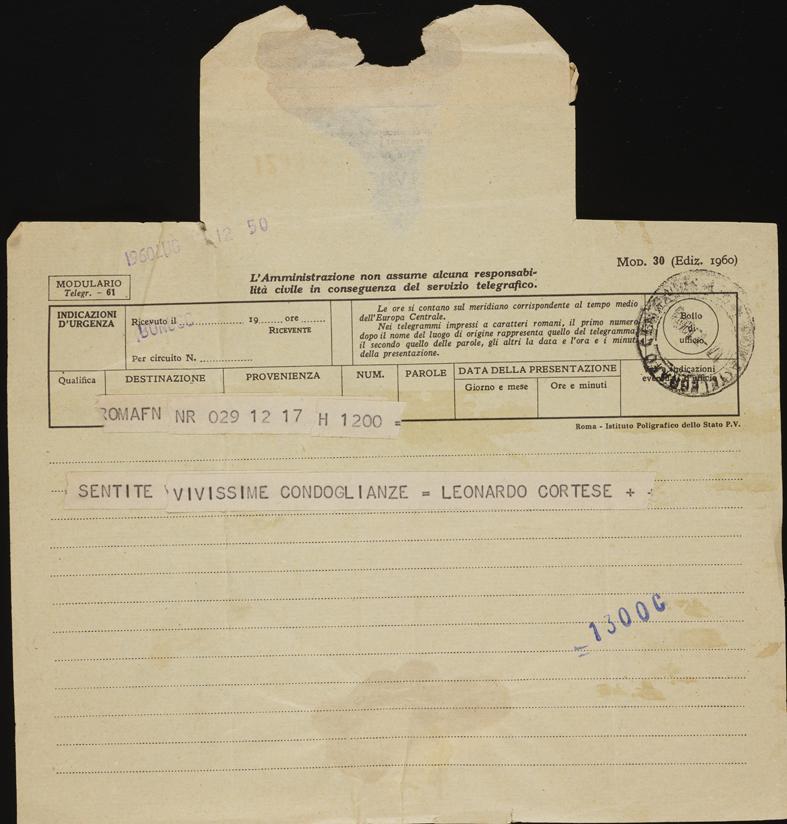 1960 LUG 12 50
MOD. 30 (Ediz. 1960)
MODULARIO
Telegr. - 61
L'Amministrazione non assume alcuna responsabi-
lità civile in conseguenza del servizio telegrafico.
INDICAZIONI
D'URGENZA
Ricevuto il 19 ore
RICEVENTE
Per circuito N.
Le ore si contano sul meridiano corrispondente al tempo medio
dell'Europa Centrale.
Nei telegrammi impressi a caratteri romani, il primo numero
dopo il nome del luogo di origine rappresenta quello del telegramma,
il secondo quello delle parole, gli altri la data e l'ora e i minuti
della presentazione.
Bollo
di
ufficio
Qualifica
DESTINAZIONE
PROVENIENZA
NUM.
PAROLE
DATA DELLA PRESENTAZIONE
Giorno e mese
Ore e minuti
Indicazioni
ROMAFN NR 029 12 17 H 1200 =
Roma - Istituto Poligrafico dello Stato P.V.
SENTITE VIVISSIME CONDOGLIANZE = LEONARDO CORTESE +